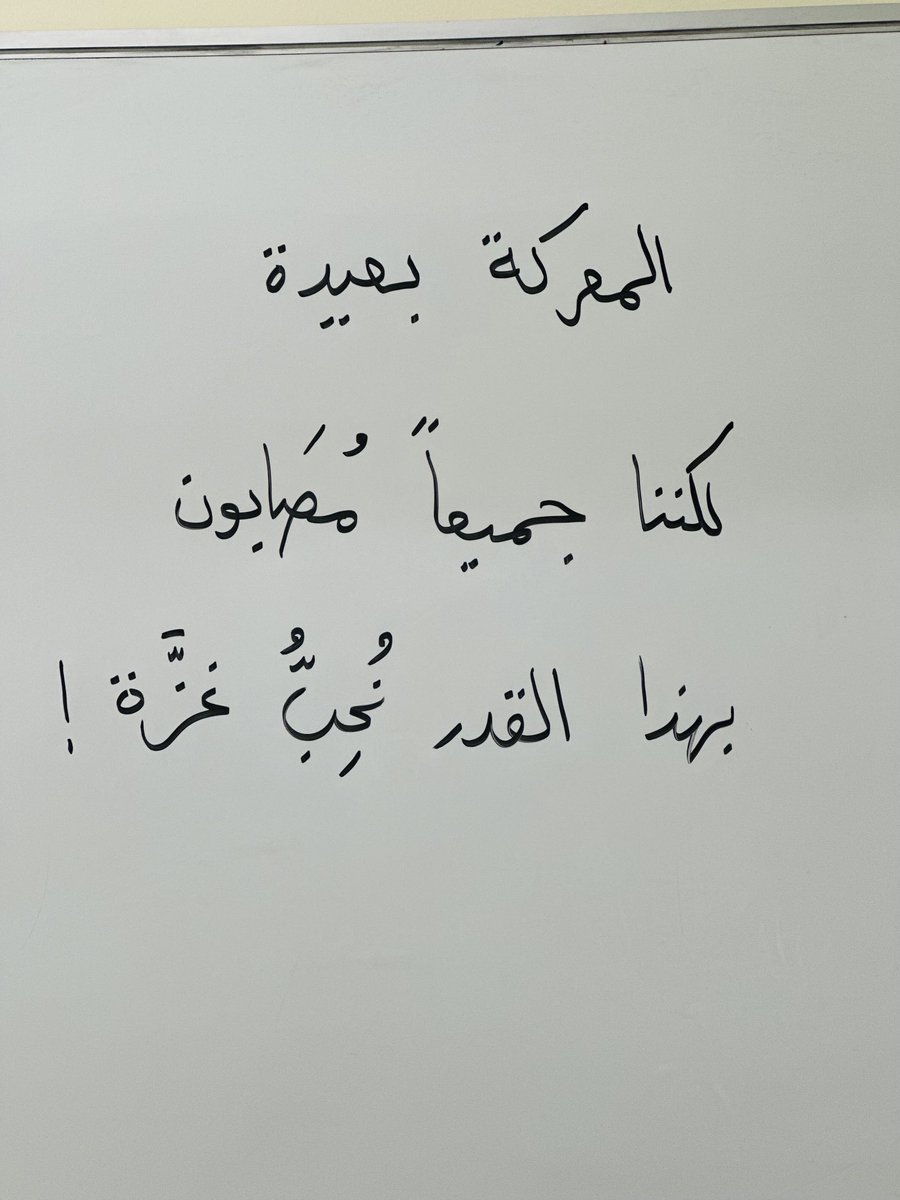 المعركة بعيدة
لكننا جميعاً مُصَابون
بهذا القدر نُحِبُّ غزَّة !